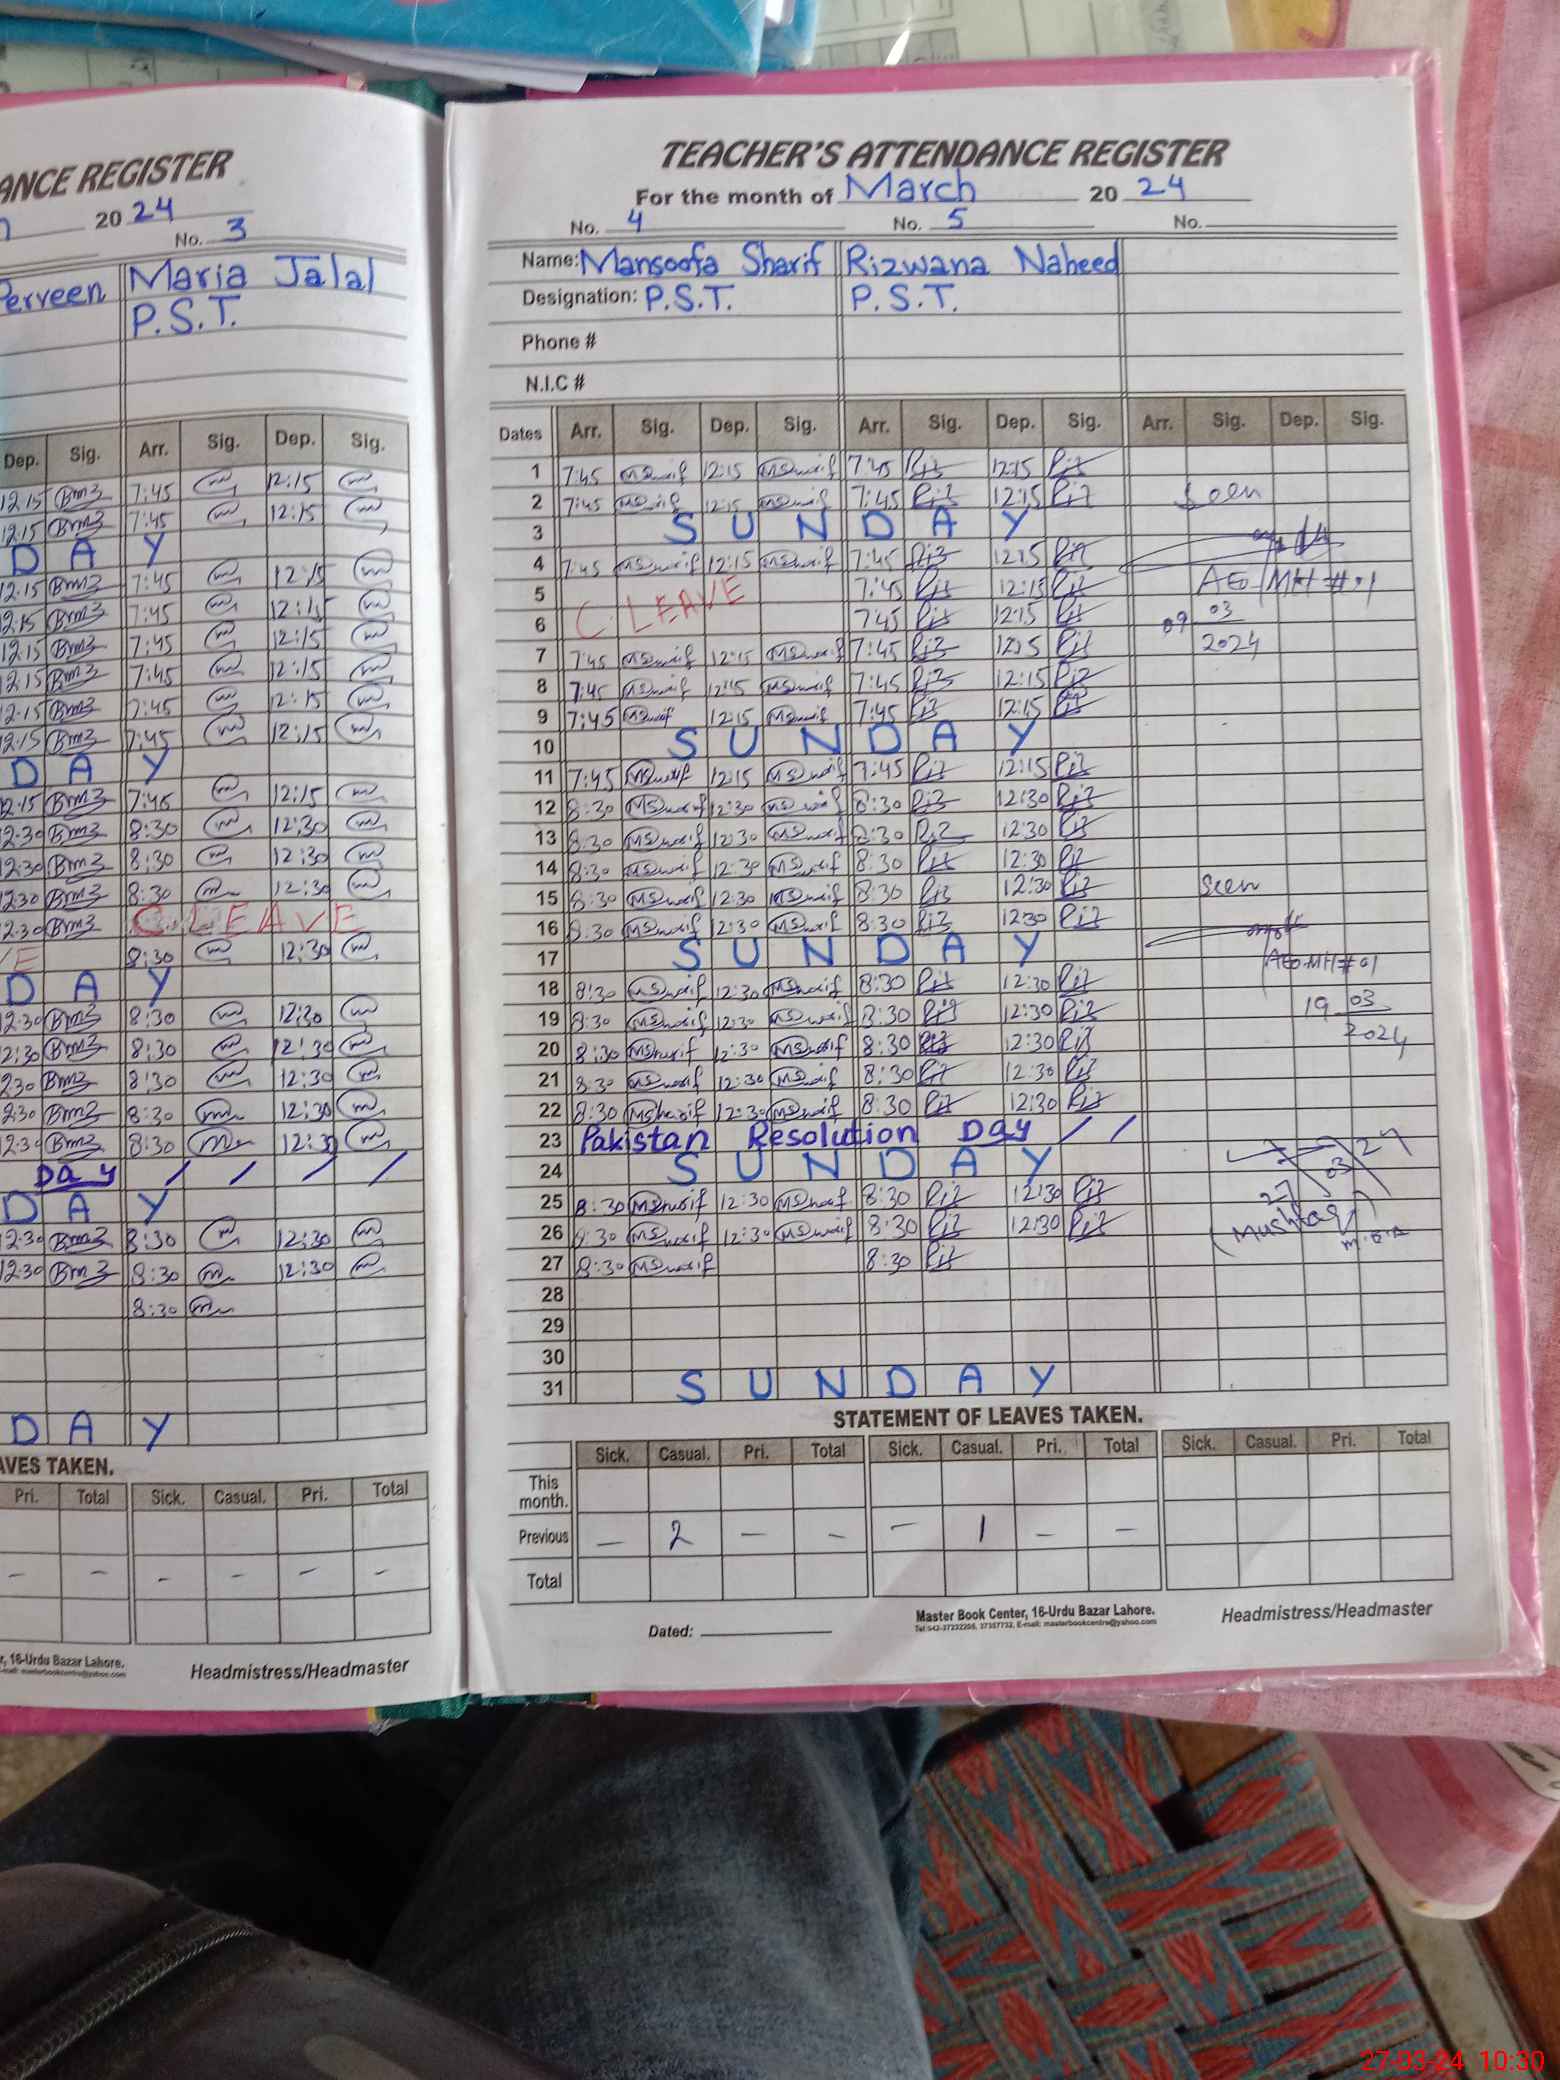 ANCE REGISTER
20 24
No. 3
Perveen Maria Jalal
P.S.T.
Dep. Sig. Arr. Sig. Dep. Sig.
12.15 Bm3 7:45 12:15
12.15 Bm3 7:45 12:15
D A Y
12.15 Bm3 7:45 12:15
12.15 Bm3 7:45 12:15
12.15 Bm3 7:45 12:15
12.15 Bm3 7:45 12:15
12.15 Bm3 7:45 12:15
12.15 Bm3 7:45 12:15
D A Y
12.15 Bm3 7:45 12:15
12.30 Bm3 8:30 12:30
12.30 Bm3 8:30 12:30
12.30 Bm3 8:30 12:30
12.30 Bm3 C. LEAVE
VE 8:30 12:30
D A Y
12.30 Bm3 8:30 12:30
12:30 Bm3 8:30 12:30
2.30 Bm3 8:30 12:30
2:30 Bm3 8:30 12:30
12.30 Bm3 8:30 12:30
Day / / / /
D A Y
12.30 Bm3 8:30 12:30
12.30 Bm3 8:30 12:30
8:30
D A Y
AVES TAKEN.
Pri. Total Sick. Casual. Pri. Total
- - - - - -
r, 16-Urdu Bazar Lahore.
Headmistress/Headmaster
TEACHER'S ATTENDANCE REGISTER
For the month of March 20 24
No. 4 No. 5 No.
Name: Mansoofa Sharif Rizwana Naheed
Designation: P.S.T. P.S.T.
Phone #
N.I.C #
Dates Arr. Sig. Dep. Sig. Arr. Sig. Dep. Sig. Arr. Sig. Dep. Sig.
1 7:45 MSharif 12:15 MSharif 7:45 Riz 12:15 Riz
2 7:45 MSharif 12:15 MSharif 7:45 Riz 12:15 Riz Seen
3 S U N D A Y
4 7:45 MSharif 12:15 MSharif 7:45 Riz 12:15 Riz
5 C. LEAVE 7:45 Riz 12:15 Riz AEO-MH#01
6 7:45 Riz 12:15 Riz 09 03
7 7:45 MSharif 12:15 MSharif 7:45 Riz 12:15 Riz 2024
8 7:45 MSharif 12:15 MSharif 7:45 Riz 12:15 Riz
9 7:45 MSharif 12:15 MSharif 7:45 Riz 12:15 Riz
10 S U N D A Y
11 7:45 MSharif 12:15 MSharif 7:45 Riz 12:15 Riz
12 8:30 MSharif 12:30 MSharif 8:30 Riz 12:30 Riz
13 8:30 MSharif 12:30 MSharif 8:30 Riz 12:30 Riz
14 8:30 MSharif 12:30 MSharif 8:30 Riz 12:30 Riz
15 8:30 MSharif 12:30 MSharif 8:30 Riz 12:30 Riz Seen
16 8:30 MSharif 12:30 MSharif 8:30 Riz 12:30 Riz
17 S U N D A Y AEO-MH#01
18 8:30 MSharif 12:30 MSharif 8:30 Riz 12:30 Riz
19 8:30 MSharif 12:30 MSharif 8:30 Riz 12:30 Riz 19 03
20 8:30 MSharif 12:30 MSharif 8:30 Riz 12:30 Riz 2024
21 8:30 MSharif 12:30 MSharif 8:30 Riz 12:30 Riz
22 8:30 MSharif 12:30 MSharif 8:30 Riz 12:30 Riz
23 Pakistan Resolution Day / /
24 S U N D A Y 27/03/24
25 8:30 MSharif 12:30 MSharif 8:30 Riz 12:30 Riz
26 8:30 MSharif 12:30 MSharif 8:30 Riz 12:30 Riz (Mushtaq)
27 8:30 MSharif 8:30 Riz
28
29
30
31 S U N D A Y
STATEMENT OF LEAVES TAKEN.
Sick. Casual. Pri. Total Sick. Casual. Pri. Total Sick. Casual. Pri. Total
This month.
Previous - 2 - - - 1 - -
Total
Dated:
Master Book Center, 16-Urdu Bazar Lahore.
Headmistress/Headmaster
27-03-24 10:30